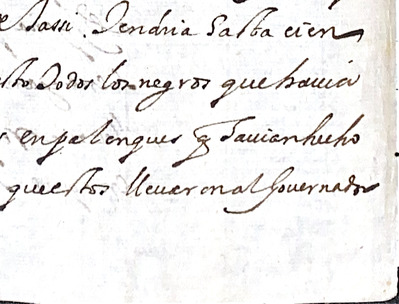 e Sassi Tendria hasta cien
sto Todos los negros que havia
s en palenques q havian hecho
que estos llevaron al Governador